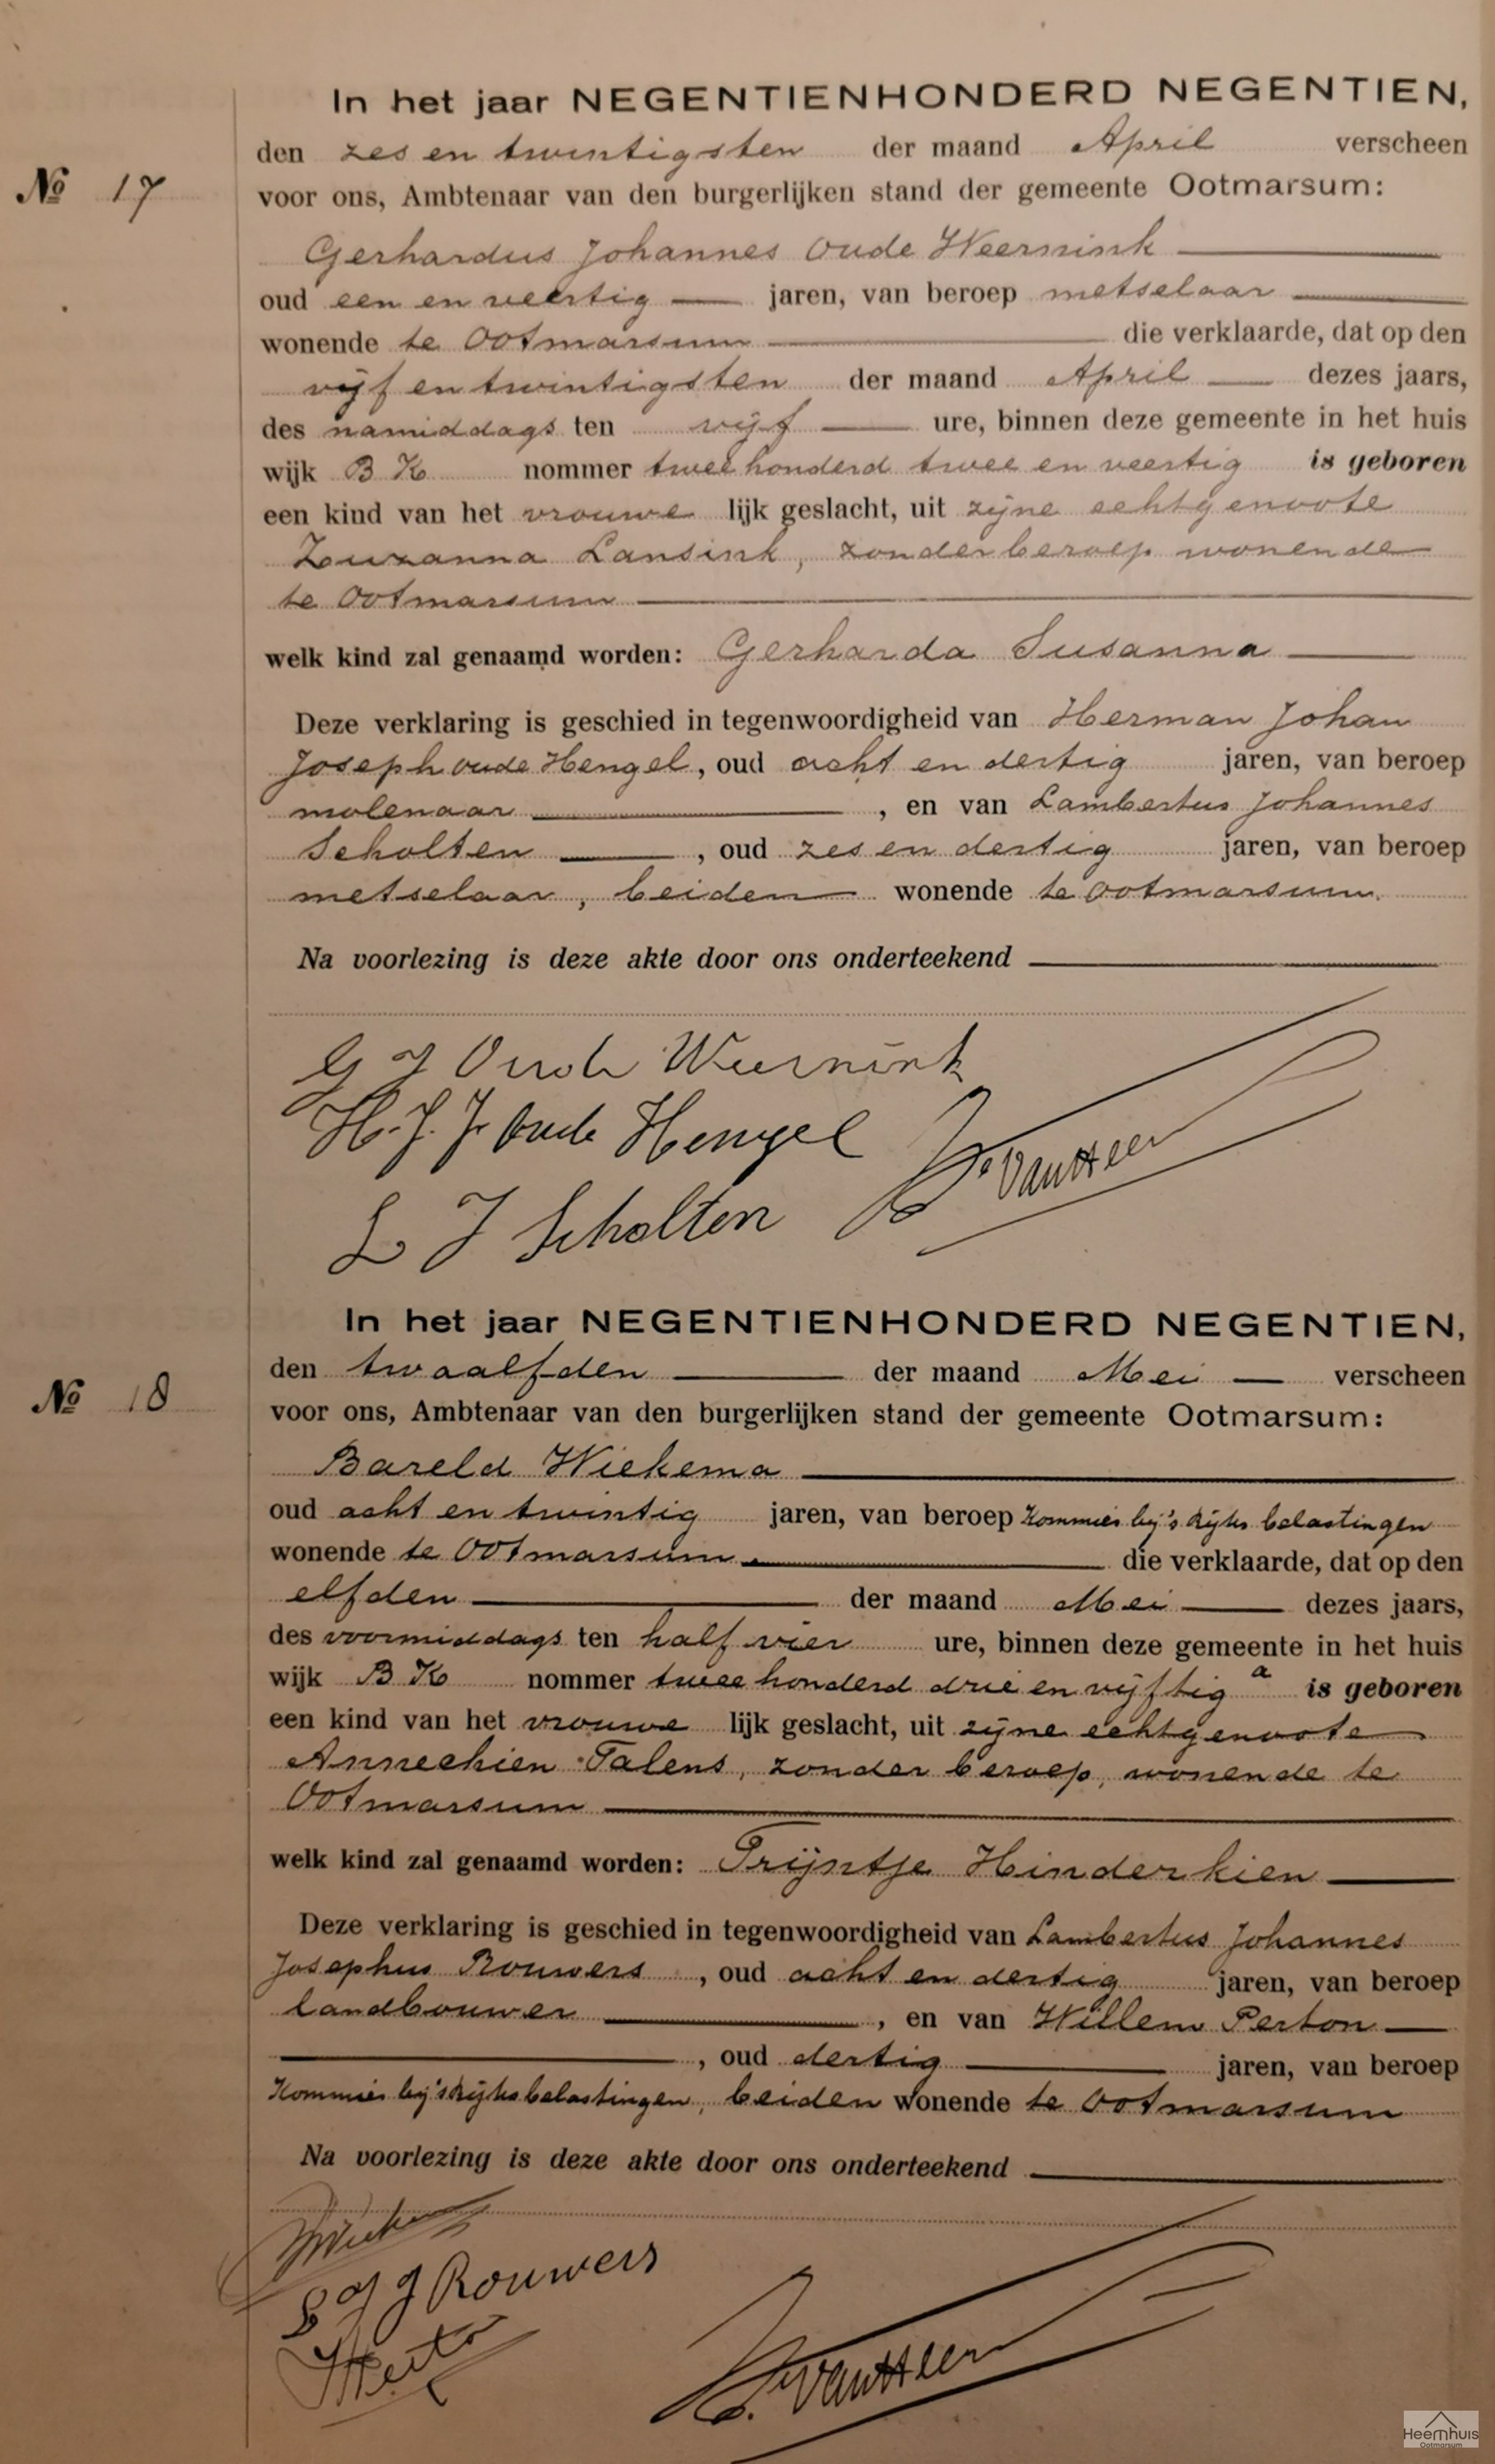 In het jaar NEGENTIENHONDERD NEGENTIEN,
den zes en twintigsten der maand April verscheen
No 17
voor ons, Ambtenaar van den burgerlijken stand der gemeente Ootmarsum:
Gerhardus Johannes Oude Weernink
oud een en veertig jaren, van beroep metselaar
wonende te Ootmarsum die verklaarde, dat op den
vijf en twintigsten der maand April dezes jaars,
des namiddags ten vijf ure, binnen deze gemeente in het huis
wijk B K nommer twee honderd twee en veertig is geboren
een kind van het vrouwe lijk geslacht, uit zijne echtgenoote
Zuzanna Lansink, zonder beroep wonende
te Ootmarsum
welk kind zal genaamd worden: Gerharda Susanna
Deze verklaring is geschied in tegenwoordigheid van Herman Johan
Joseph oude Hengel, oud acht en dertig jaren, van beroep
molenaar, en van Lambertus Johannes
Scholten, oud zes en dertig jaren, van beroep
metselaar, beiden wonende te Ootmarsum.
Na voorlezing is deze akte door ons onderteekend
G J Oude Weernink
H. J. J. Oude Hengel
L J Scholten
In het jaar NEGENTIENHONDERD NEGENTIEN,
den twaalfden der maand Mei verscheen
No 18
voor ons, Ambtenaar van den burgerlijken stand der gemeente Ootmarsum:
Bareld Wiekema
oud acht en twintig jaren, van beroep Kommies bij 's Rijks belastingen
wonende te Ootmarsum die verklaarde, dat op den
elfden der maand Mei dezes jaars,
des voormiddags ten half vier ure, binnen deze gemeente in het huis
wijk B K nommer twee honderd drie en vijftig a is geboren
een kind van het vrouwe lijk geslacht, uit zijne echtgenoote
Annechien Talens, zonder beroep, wonende te
Ootmarsum
welk kind zal genaamd worden: Trijntje Hinderkien
Deze verklaring is geschied in tegenwoordigheid van Lambertus Johannes
Josephus Rouwers, oud acht en dertig jaren, van beroep
landbouwer, en van Willem Perton
, oud dertig jaren, van beroep
Kommies bij 's Rijks belastingen, beiden wonende te Ootmarsum
Na voorlezing is deze akte door ons onderteekend
L J J Rouwers
Heemhuis
Ootmarsum